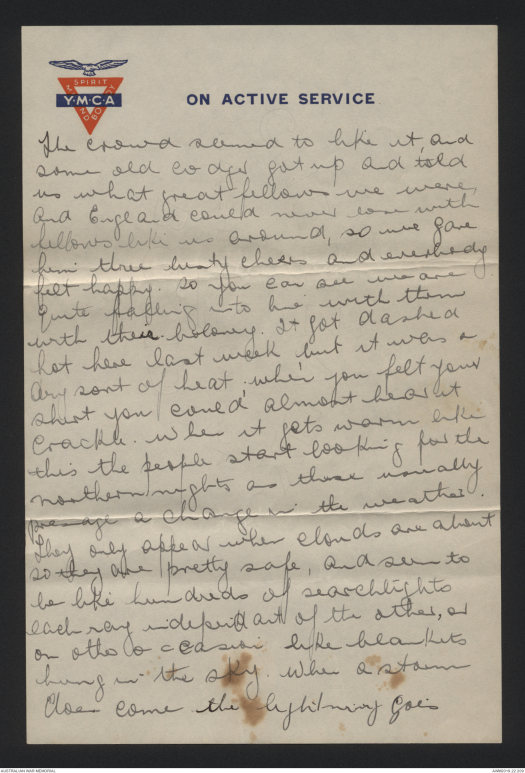 SPIRIT
Y·M·C·A
MIND
BODY
ON ACTIVE SERVICE
The crowd seemed to like it, and
some old codger got up and told
us what great fellows we were,
and England could never lose with
fellows like us around, so we gave
him three lusty cheers and everbody
felt happy. So you can see we are
quite falling into line with them
with their boloney. It got dashed
hot here last week but it was a
dry sort of heat, when you felt your
shirt you could almost hear it
crackle. When it gets warm like
this the people start looking for the
northern nights as these usually
presage a change in the weather.
They only appear when clouds are about
so they are pretty safe, and seem to
be like hundreds of searchlights
each ray independant of the other, or
on other occasion like blankets
hung in the sky. When a storm
does come the lightning goes
AUSTRALIAN WAR MEMORIAL